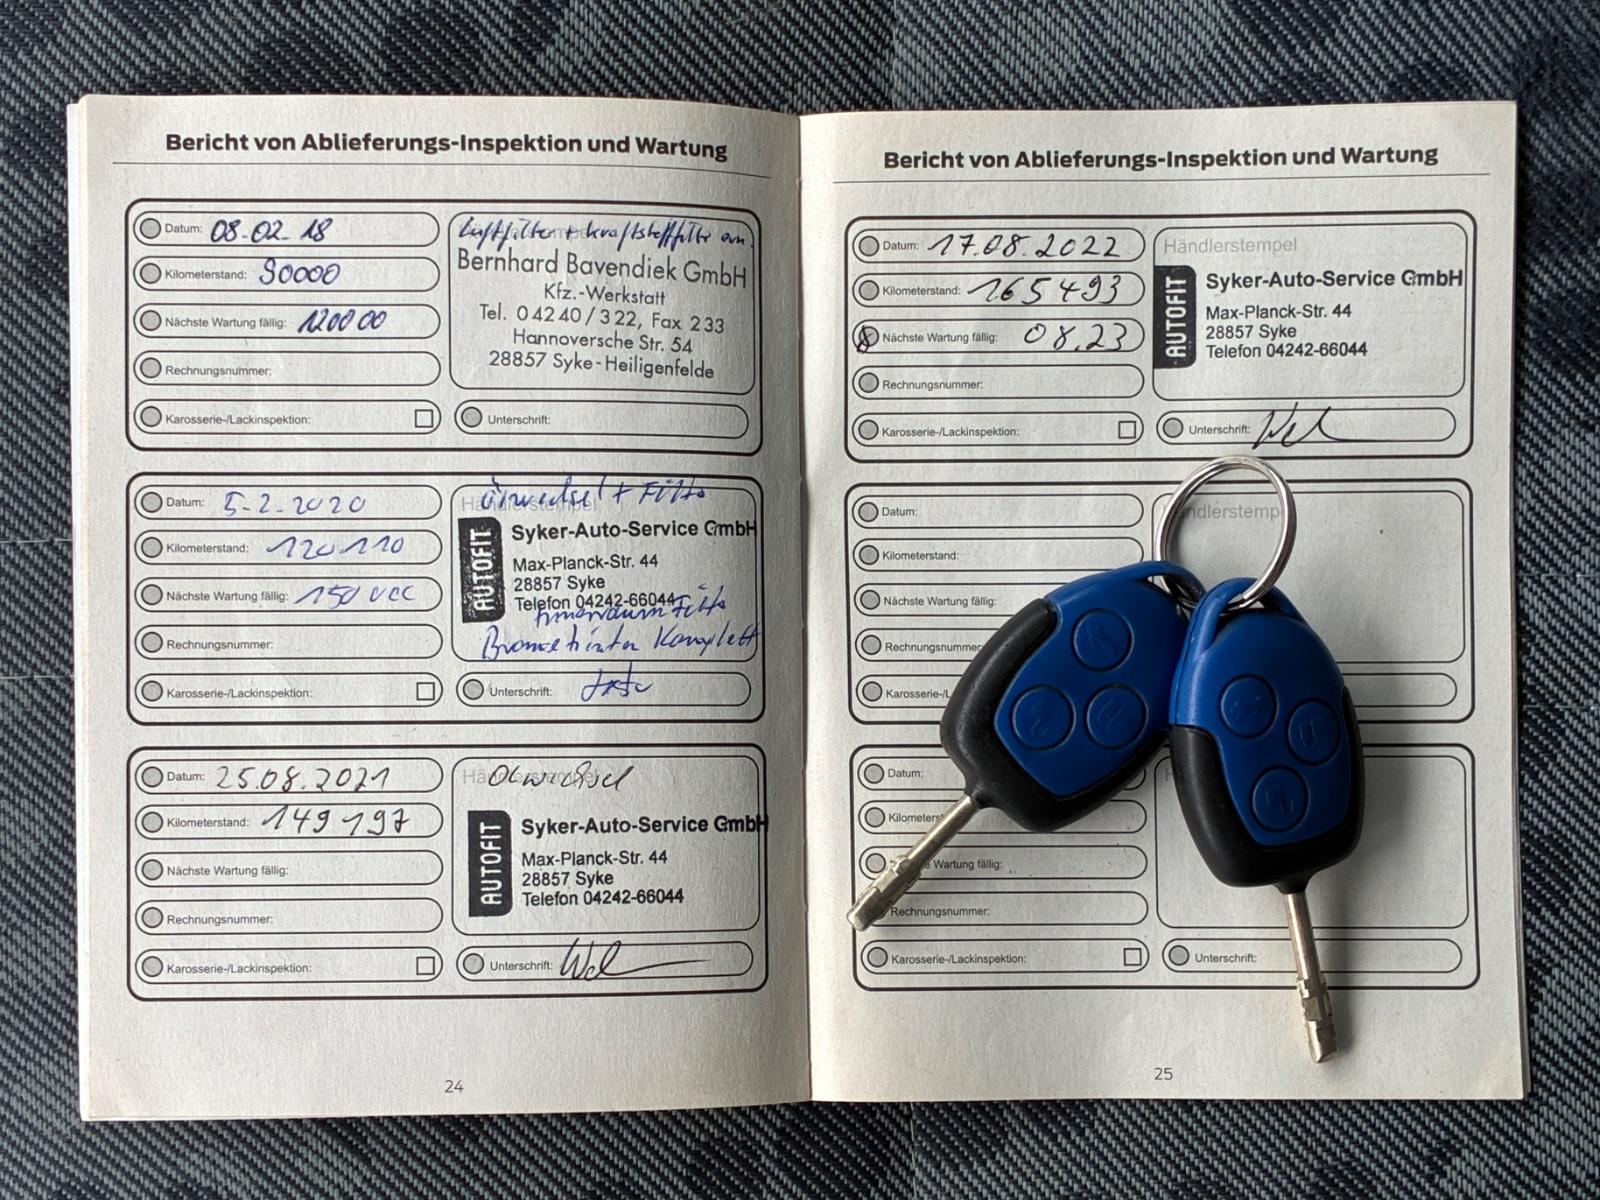 Bericht von Ablieferungs-Inspektion und Wartung
Datum: 08.02.18
Kilometerstand: 90000
Nächste Wartung fällig: 120000
Rechnungsnummer:
Karosserie-/Lackinspektion:
Luftfilter + Kraftstofffilter ern.
Bernhard Bavendiek GmbH
Kfz.-Werkstatt
Tel. 04240/322, Fax 233
Hannoversche Str. 54
28857 Syke-Heiligenfelde
Unterschrift:
Datum: 5-2-2020
Kilometerstand: 120110
Nächste Wartung fällig: 150 000
Rechnungsnummer:
Karosserie-/Lackinspektion:
Ölwechsel + Filter
Händlerstempel
AUTOFIT
Syker-Auto-Service GmbH
Max-Planck-Str. 44
28857 Syke
Telefon 04242-66044
Innenraum Filter
Bremse hinten Komplett
Unterschrift:
Datum: 25.08.2021
Kilometerstand: 149197
Nächste Wartung fällig:
Rechnungsnummer:
Karosserie-/Lackinspektion:
Händlerstempel
Ölwechsel
AUTOFIT
Syker-Auto-Service GmbH
Max-Planck-Str. 44
28857 Syke
Telefon 04242-66044
Unterschrift:
24
Bericht von Ablieferungs-Inspektion und Wartung
Datum: 17.08.2022
Kilometerstand: 165493
Nächste Wartung fällig: 08.23
Rechnungsnummer:
Karosserie-/Lackinspektion:
Händlerstempel
AUTOFIT
Syker-Auto-Service GmbH
Max-Planck-Str. 44
28857 Syke
Telefon 04242-66044
Unterschrift:
Datum:
Kilometerstand:
Nächste Wartung fällig:
Rechnungsnummer:
Karosserie-/L
ndlerstempel
Datum:
Kilometerst
e Wartung fällig:
Rechnungsnummer:
Karosserie-/Lackinspektion:
Unterschrift:
25